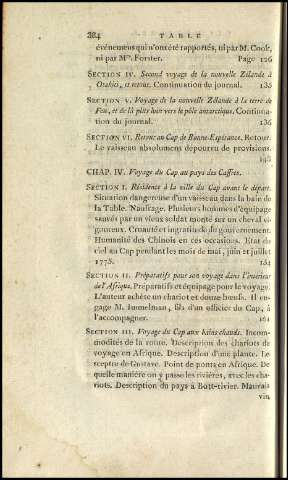 384 TABLE
événemens qui n'ont été rapportés, ni par M. Cook,
ni par Mrs. Forster. Page 126
SECTION IV. Second voyage de la nouvelle Zélande à
Otahiti, et retour. Continuation du journal. 135
SECTION V. Voyage de la nouvelle Zélande à la terre de
Feu, et de là plus loin vers le pôle antarctique. Continua-
tion du journal. 136
SECTION VI. Retour au Cap de Bonne-Espérance. Retour.
Le vaisseau absolument dépourvu de provisions.
148
CHAP. IV. Voyage du Cap au pays des Caffres.
SECTION I. Résidence à la ville du Cap avant le départ.
Situation dangereuse d'un vaisseau dans la baie de
la Table. Naufrage. Plusieurs hommes d'équipage
sauvés par un vieux soldat monté sur un cheval vi-
goureux. Cruauté et ingratitude du gouvernement.
Humanité des Chinois en ces occasions. Etat du
ciel au Cap pendant les mois de mai, juin et juillet
1775. 151
SECTION II. Préparatifs pour son voyage dans l'intérieur
de l'Afrique. Préparatifs et équipage pour le voyage.
L'auteur achète un chariot et douze bœufs. Il en-
gage M. Immelman, fils d'un officier du Cap, à
l'accompagner. 161
SECTION III. Voyage du Cap aux bains chauds. Incom-
modités de la route. Description des chariots de
voyage en Afrique. Description d'une plante. Le
sceptre de Gustave. Point de ponts en Afrique. De
quelle manière on y passe les rivières, avec les cha-
riots. Description du pays à Bott-rivier. Mauvais
vin